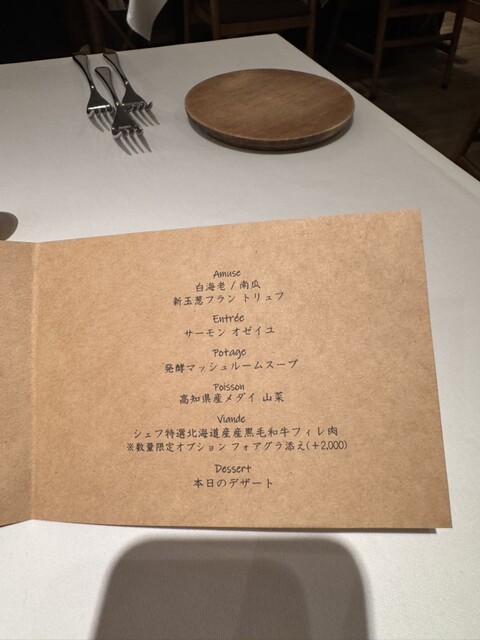 Amuse
白海老 / 南瓜
新玉葱フラン トリュフ
Entrée
サーモン オゼイユ
Potage
発酵マッシュルームスープ
Poisson
高知県産メダイ 山菜
Viande
シェフ特選北海道産産黒毛和牛フィレ肉
※数量限定オプション フォアグラ添え(＋2,000)
Dessert
本日のデザート